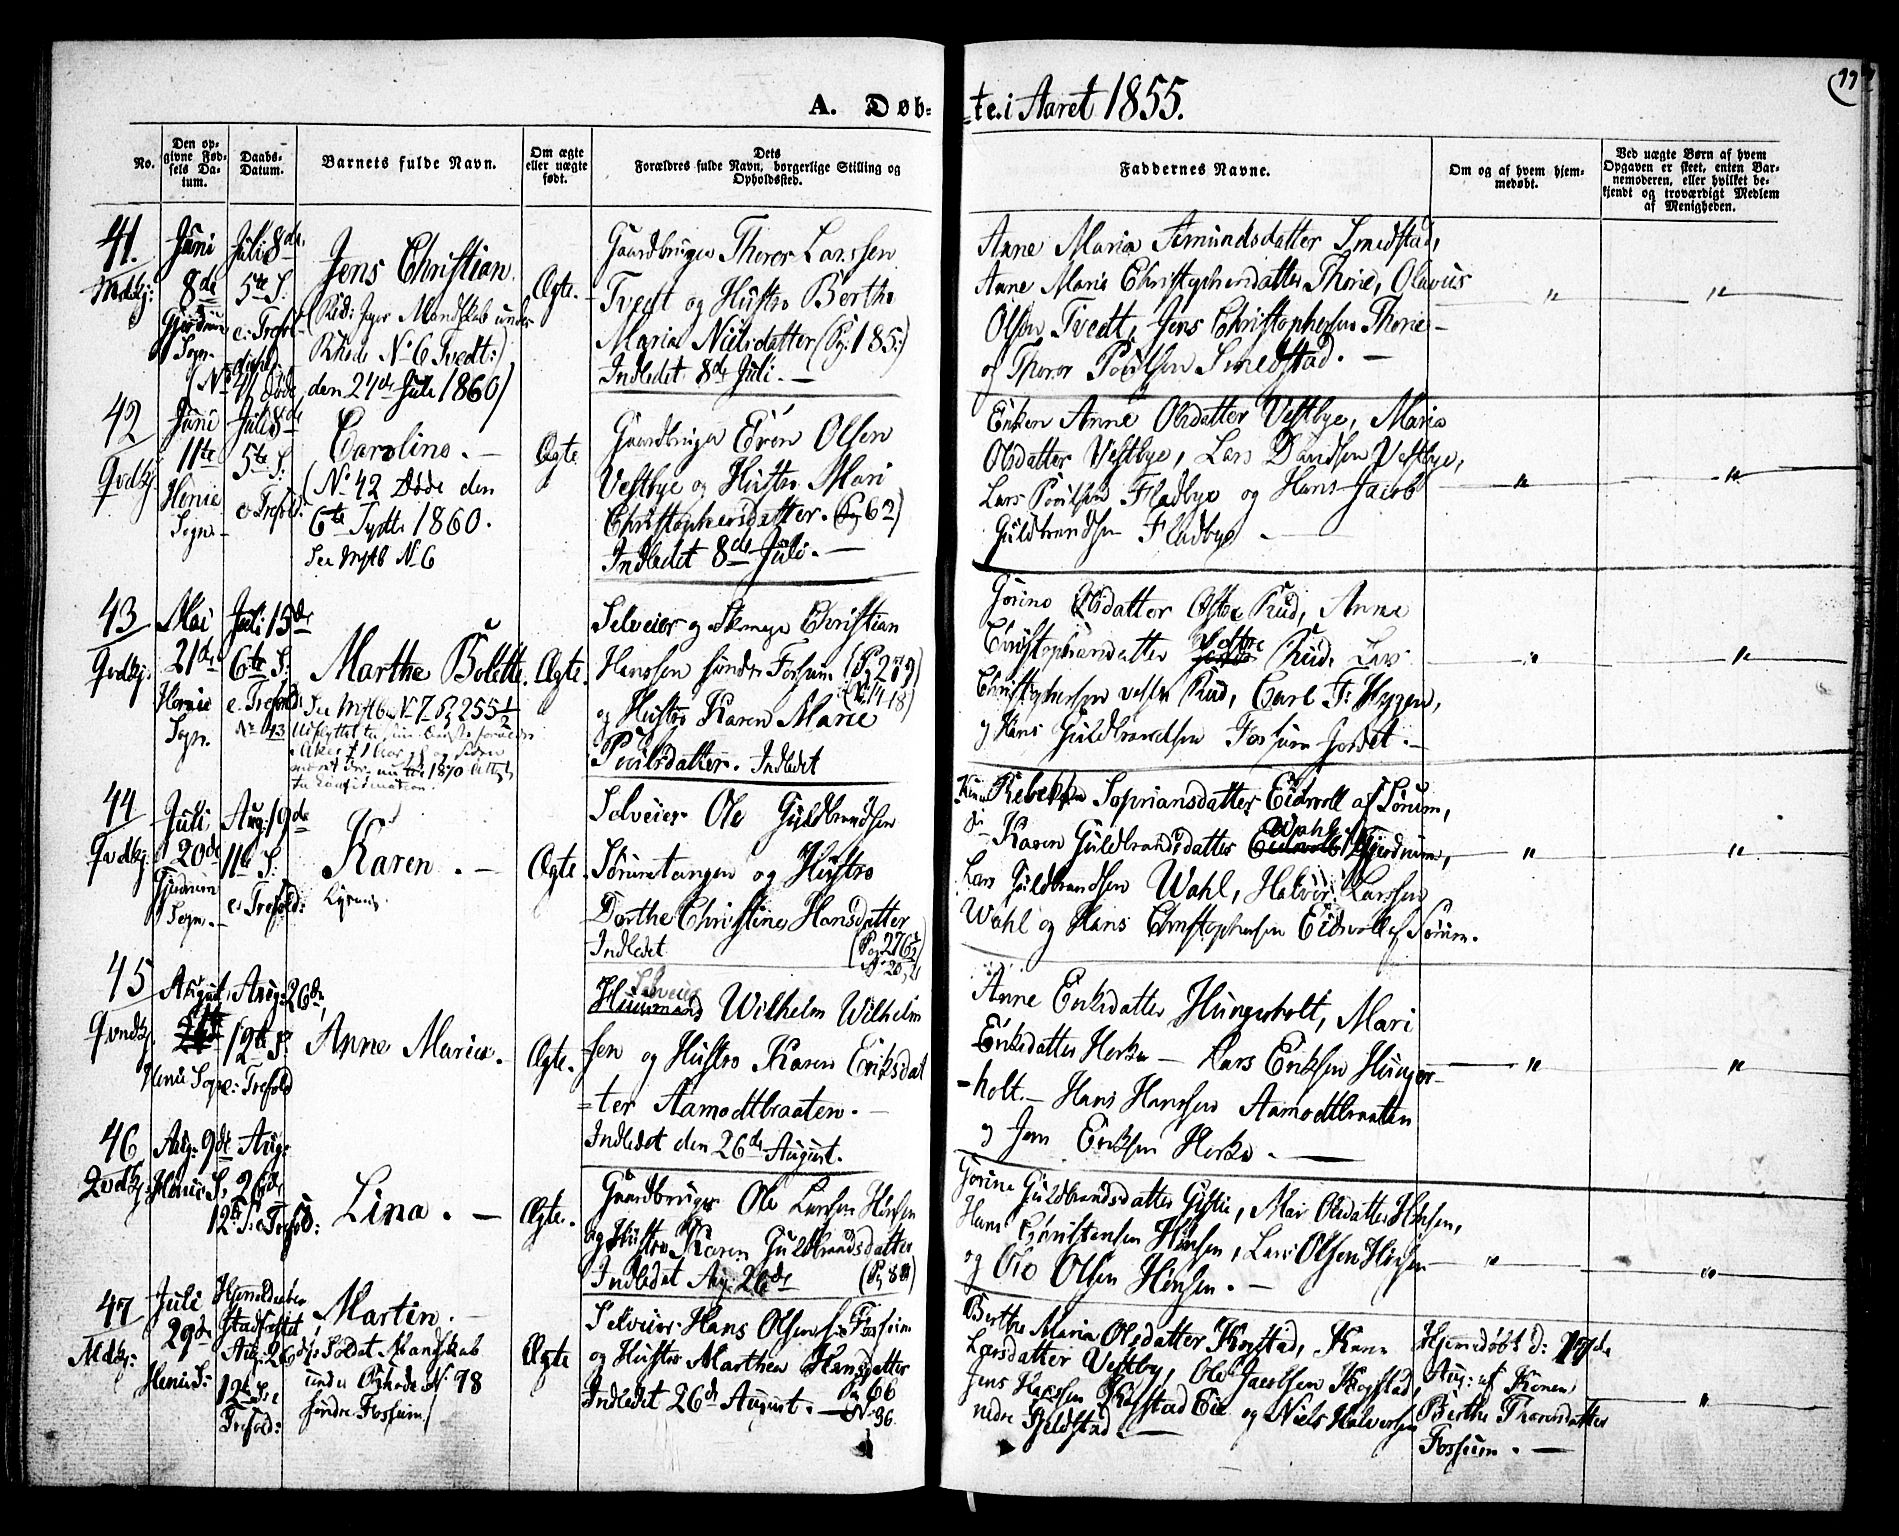 A. Døb-
te i Aaret 1855.
No.
Den op-
givne Fød-
sels Da-
tum.
Daabs-
Datum.
Barnets fulde Navn.
Om ægte
eller uægte
født.
Dets
Forældres fulde Navn, borgerlige Stilling og
Opholdssted.
Faddernes Navne.
Om og af hvem hjem-
medøbt.
Ved uægte Børn af hvem
Opgaven er skeet, enten Bar-
nemoderen, eller hvilket be-
kjendt og troværdigt Medlem
af Menigheden.
41.
Mdkj:
Juni
8de
Gjerdrum
Sogn.
Juli 8de
5te S.
e: Trefol-
dighd
Jens Christian.
under
No 6 Tvedt:)
(No 41 Døde den 24de Juli 1860)
Ægte.
Gaardbruger Thoror Larssen
Tvedt og Hustro Berthe
Maria Nielsdatter (Pg: 185:)
Indledet 8de Juli.
Anne Maria Amundsdatter Smedstad,
Anne Maria Christophersdatter Thorie, Olavus
Olsen Tvedt, Jens Christophersen Thorie
og Thoror Poulsen Smedstad.
"
"
42
Qvdkj.
Juni
11te
Henie
Sogn
Juli 8de
5te S.
e. Trefold:
Caroline.
(No 42 Døde den
6te 1860.
See No 6
Ægte
Gaardbruger Edvon Olsen
Vestbye og Hustro Mari
Christophersdatter. (Pg 62)
Indledet 8de Juli.
Enken Anne Olsdatter Vestbye, Maria
Olsdatter Vestbye, Lars Vestbye,
Lars Poulsen Fladbye og Hans Jacob
Guldbrandsen Fladbye
"
"
43
Qvdkj.
Mai
21de
Henie
Sogn.
Juli 15de
6te S.
e. Trefold:
No 43
Marthe Bolette.
See No 7 Pg 255 1/2
1870
Confirmation.
Ægte.
Selveier og Christian
Hanssen søndre Fossum (Pg 279)
(No 17-18)
og Hustro Karen Marie
Poulsdatter. Indledet
Gorine Olsdatter Østre Rud, Anne
Christophersdatter Østre Rud, Lars
Christophersen vestre Rud, Carl F: Hygen,
og Hans Guldbrandsen Fossum Jordet.
"
"
44
Qvdkj.
Juli
20de
Gjerdrum
Sogn.
Aug: 19de
11te S.
e: Trefold:
Karen.
Ægte.
Selveier Ole Guldbrandsen
Sørumstangen og Hustro
Dorthe Christine Hansdatter
Indledet
(Pag 276
No 20, 21
Rebekka Sopriansdatter Eidsvoll af Sørum,
Karen Guldbrandsdatter Wahl i Gjerdrum,
Lars Guldbrandsen Wahl, Halvor Larssen
Wahl og Hans Christophersen Eidsvoll af Sørum.
"
"
45
Qvndkj.
August
Henie Sogn
Aug: 26de
12te S.
e: Trefold
Anne Maria.
Ægte.
Selveier
Husmand Wilhelm Wilhelm
sen og Hustro Karen Eriksdat
=ter Aamodtbraaten.
Indledet den 26de August.
Anne Eriksdatter Hungerholt, Mari
Eriksdatter Herke - Lars Eriksen Hunger-
-holt. Hans Hanssen Aamodtbraaten
og Jens Eriksen Herke.
"
"
46
Qvdkj.
Aug: 9de
Henie S.
Aug:
26de
12te S. e Trefold:
Lina.
Ægte.
Gaardbruger Ole Larssen Hønsen
og Hustro Karen Guldbrandsdatter
Indledet Aug. 26de
Gorine Guldbrandsdatter Gistie, Mari Olsdatter Hønsen,
Hans Christensen Hønsen, Lars Olsen Hønsen
og Ole Olsen Hønsen.
"
"
47
Mdkj:
Juli
29de
Henie S:
Hjemmedaaben
Stadfæstet
Aug: 26de
12te S. e
Trefold:
Martin.
Soldat Mandskab
under No 98
søndre Fossum.
Ægte
Selveier Hans Olsen Fossum
og Hustro Marthea Hansdatter
Indledet 26de August.
Pg 66
No 36.
Berthe Maria Olsdatter Kogstad, Karen
Larsdatter Vestby, Ole Jacobsen Kogstad,
Jens Hanssen Kogstad Eie og Niels Halvorsen
nedre Fjeldstad.
Hjemmedøbt d:
Aug: af Konen
Berthe Thorersdatter
Fossum.
"